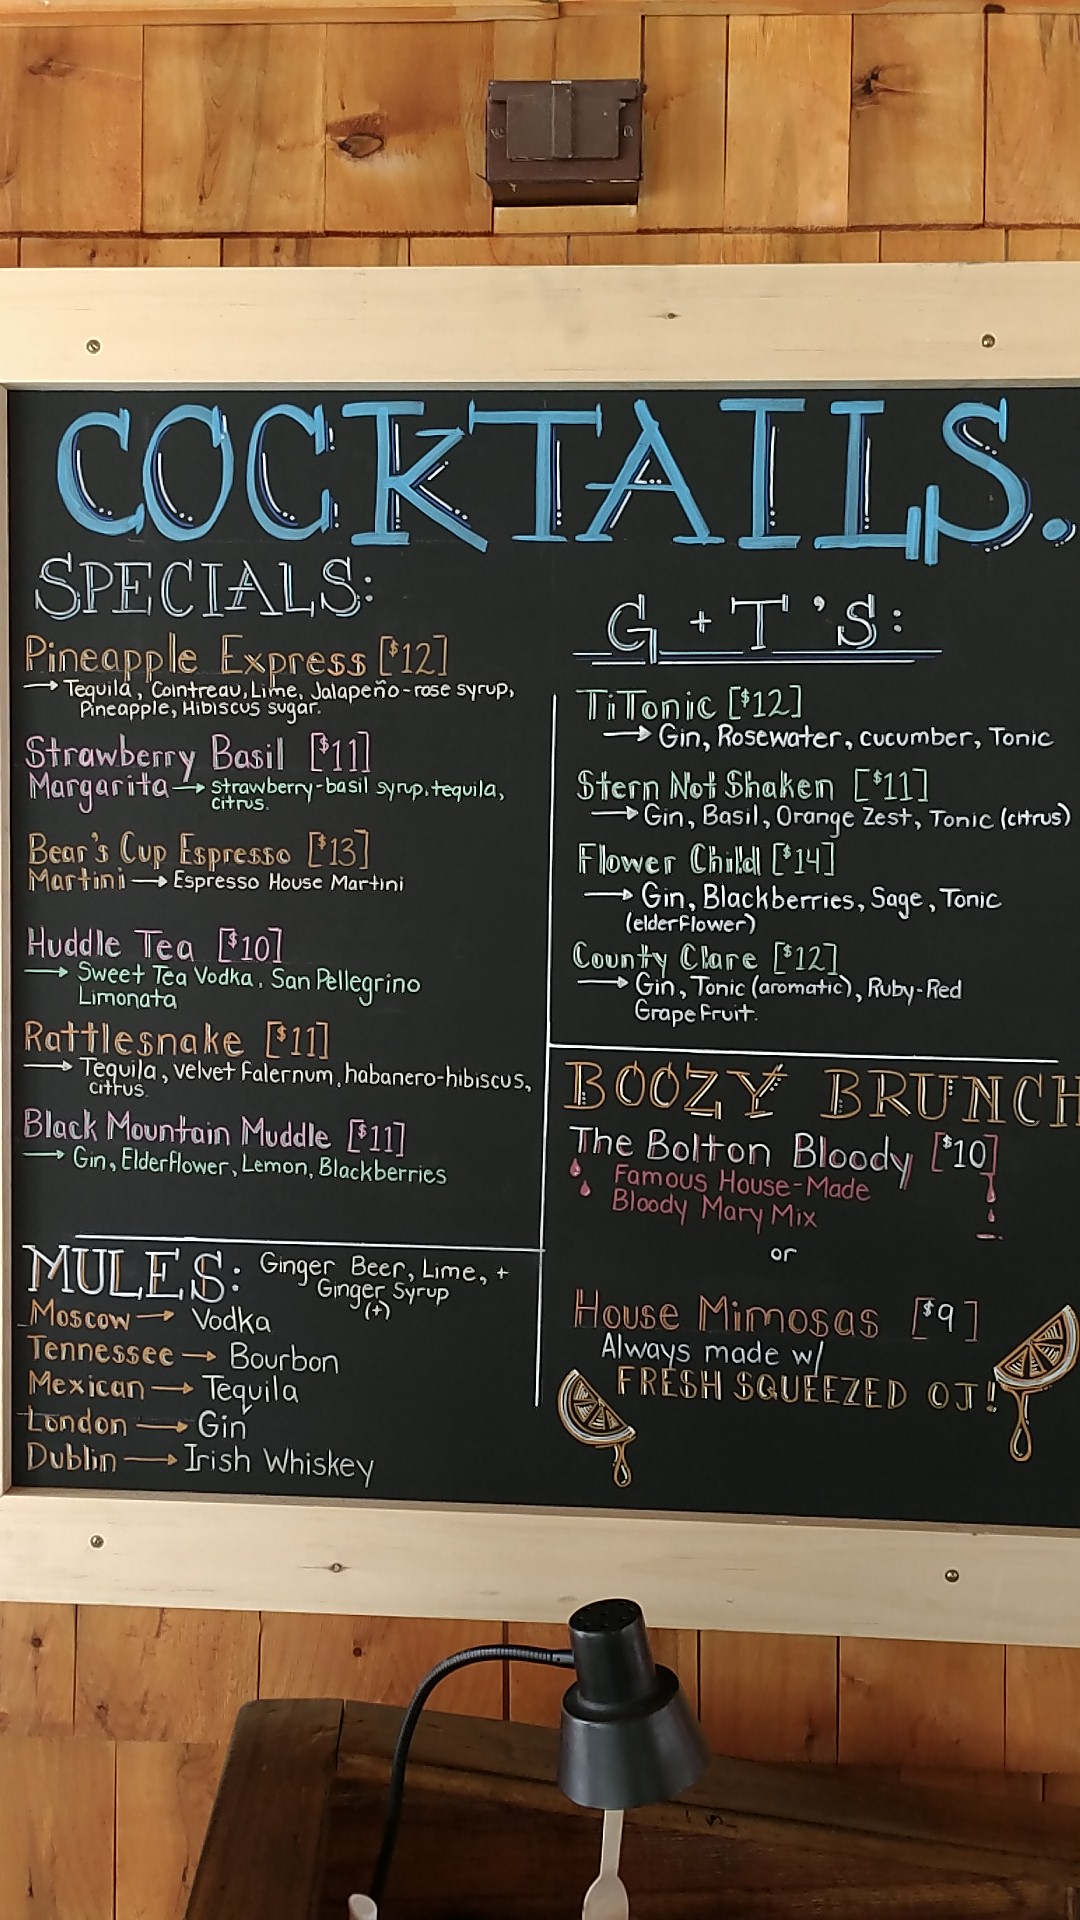 COCKTAILS.
SPECIALS:
Pineapple Express [$12]
→ Tequila, Cointreau, Lime, Jalapeño-rose syrup,
Pineapple, Hibiscus sugar.
Strawberry Basil [$11]
Margarita → strawberry-basil syrup, tequila,
citrus.
Bear's Cup Espresso [$13]
Martini → Espresso House Martini
Huddle Tea [$10]
→ Sweet Tea Vodka, San Pellegrino
Limonata
Rattlesnake [$11]
→ Tequila, velvet Falernum, habanero-hibiscus,
citrus.
Black Mountain Muddle [$11]
→ Gin, Elderflower, Lemon, Blackberries
MULES: Ginger Beer, Lime, +
Ginger Syrup
(+)
Moscow → Vodka
Tennessee → Bourbon
Mexican → Tequila
London → Gin
Dublin → Irish Whiskey
G + T'S:
TiTonic [$12]
→ Gin, Rosewater, cucumber, Tonic
Stern Not Shaken [$11]
→ Gin, Basil, Orange Zest, Tonic (citrus)
Flower Child [$14]
→ Gin, Blackberries, Sage, Tonic
(elderflower)
County Clare [$12]
→ Gin, Tonic (aromatic), Ruby-Red
Grapefruit.
BOOZY BRUNCH
The Bolton Bloody [$10]
Famous House-Made
Bloody Mary Mix
or
House Mimosas [$9]
Always made w/
FRESH SQUEEZED OJ!